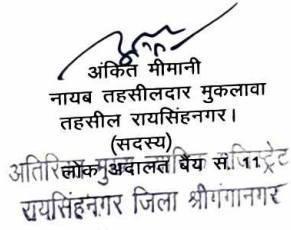 अंकित मीमानी
नायब तहसीलदार मुकलावा
तहसील रायसिंहनगर।
(सदस्य)
लोक अदालत बैंच सं. 11
अतिरिक्त मुख्य न्यायिक मजिस्ट्रेट
रायसिंहनगर जिला श्रीगंगानगर